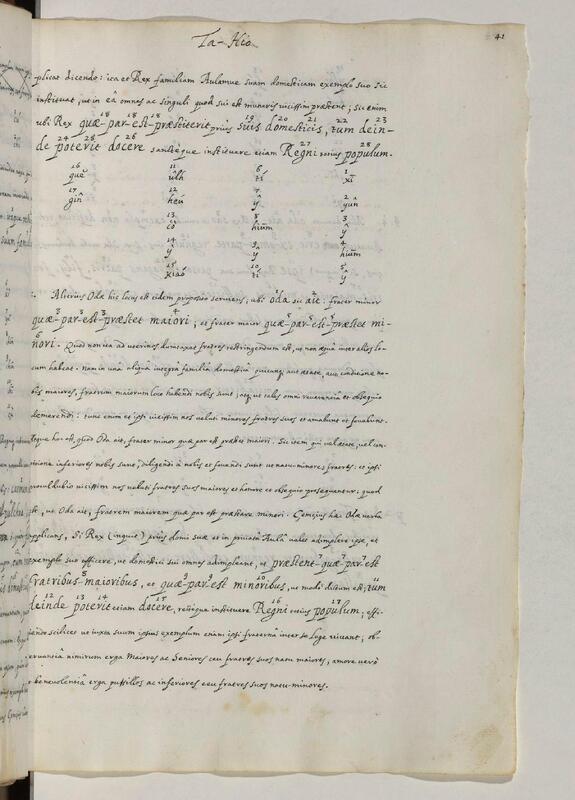 Ta-Hio
41
plicat dicendo: ita et Rex familiam Aulamve suam domesticam exemplo suo sic
instituat, ut in ea omnes ac singuli quod sui est muneris vicissim præstent; sic enim
ubi Rex quæ-par-est-præstiterit prius suis domesticis, tum dein-
18 18 18 18 19 20 21 22 23
de poterit docere sancteque instituere etiam Regni totius populum.
24 25 26 27 28
16 11 6 1
que ûlh tí xî
17 12 7 2
gin heū ŷ yun
13 8 3
cŏ hiūm ŷ
14 9 4
ŷ ŷ hiūm
15 10 5
xiaó tí ŷ
Alterius Oda hic locus est eidem proposito serviens; ubi oda sic ait: frater minor
quæ-par-est-præstet maiori, et frater maior quæ-par-est-præstet mi-
3 3 3 3 4 5 5 5 5
nori. Quod non ita ad uterinos dumtaxat fratres restringendum est, ut non æque inter alios lo-
6
cum habeat. Nam in una aliqua integra familia domestica quicunque aut ætate, aut conditione no-
bis maiores, fratrum maiorum loco habendi nobis sunt, atque ut tales omni reverentia et obsequio
demerendi: tunc enim et ipsi vicissim nos veluti minores fratres suos et amabunt et fovebunt.
Atque hoc est, quod Oda ait, frater minor quæ par est præstet maiori. Sic item qui vel ætate, vel con-
ditione inferiores nobis sunt, diligendi à nobis et fovendi sunt ut natu-minores fratres: et ipsi
proculdubio vicissim nos veluti fratres suos maiores et honore et obsequio prosequentur: quod
est, ut Oda ait, fratrem maiorem quæ par est præstare minori. Çemçius hæc Odæ verba
applicans, Si Rex (inquit) prius domi suæ et in privata Aula valet adimplere ipse, et
exemplo suo efficere, ut domestici sui omnes adimpleant, et præstent quæ-par-est
7 7 7 7
fratribus maioribus, et quæ-par-est minoribus, ut modo dictum est; tūm
8 9 9 9 10 11
deinde poterit etiam docere, rectéque instituere Regni totius populum; effi-
12 13 14 15 17
ciendo scilicet ut iuxta suum ipsius exemplum etiam ipsi fraterna inter se lege vivant; ob-
servantia nimirum erga Maiores ac Seniores ceu fratres suos natu maiores; amore verò
et benevolentiâ erga pusillos ac inferiores ceu fratres suos natu-minores.